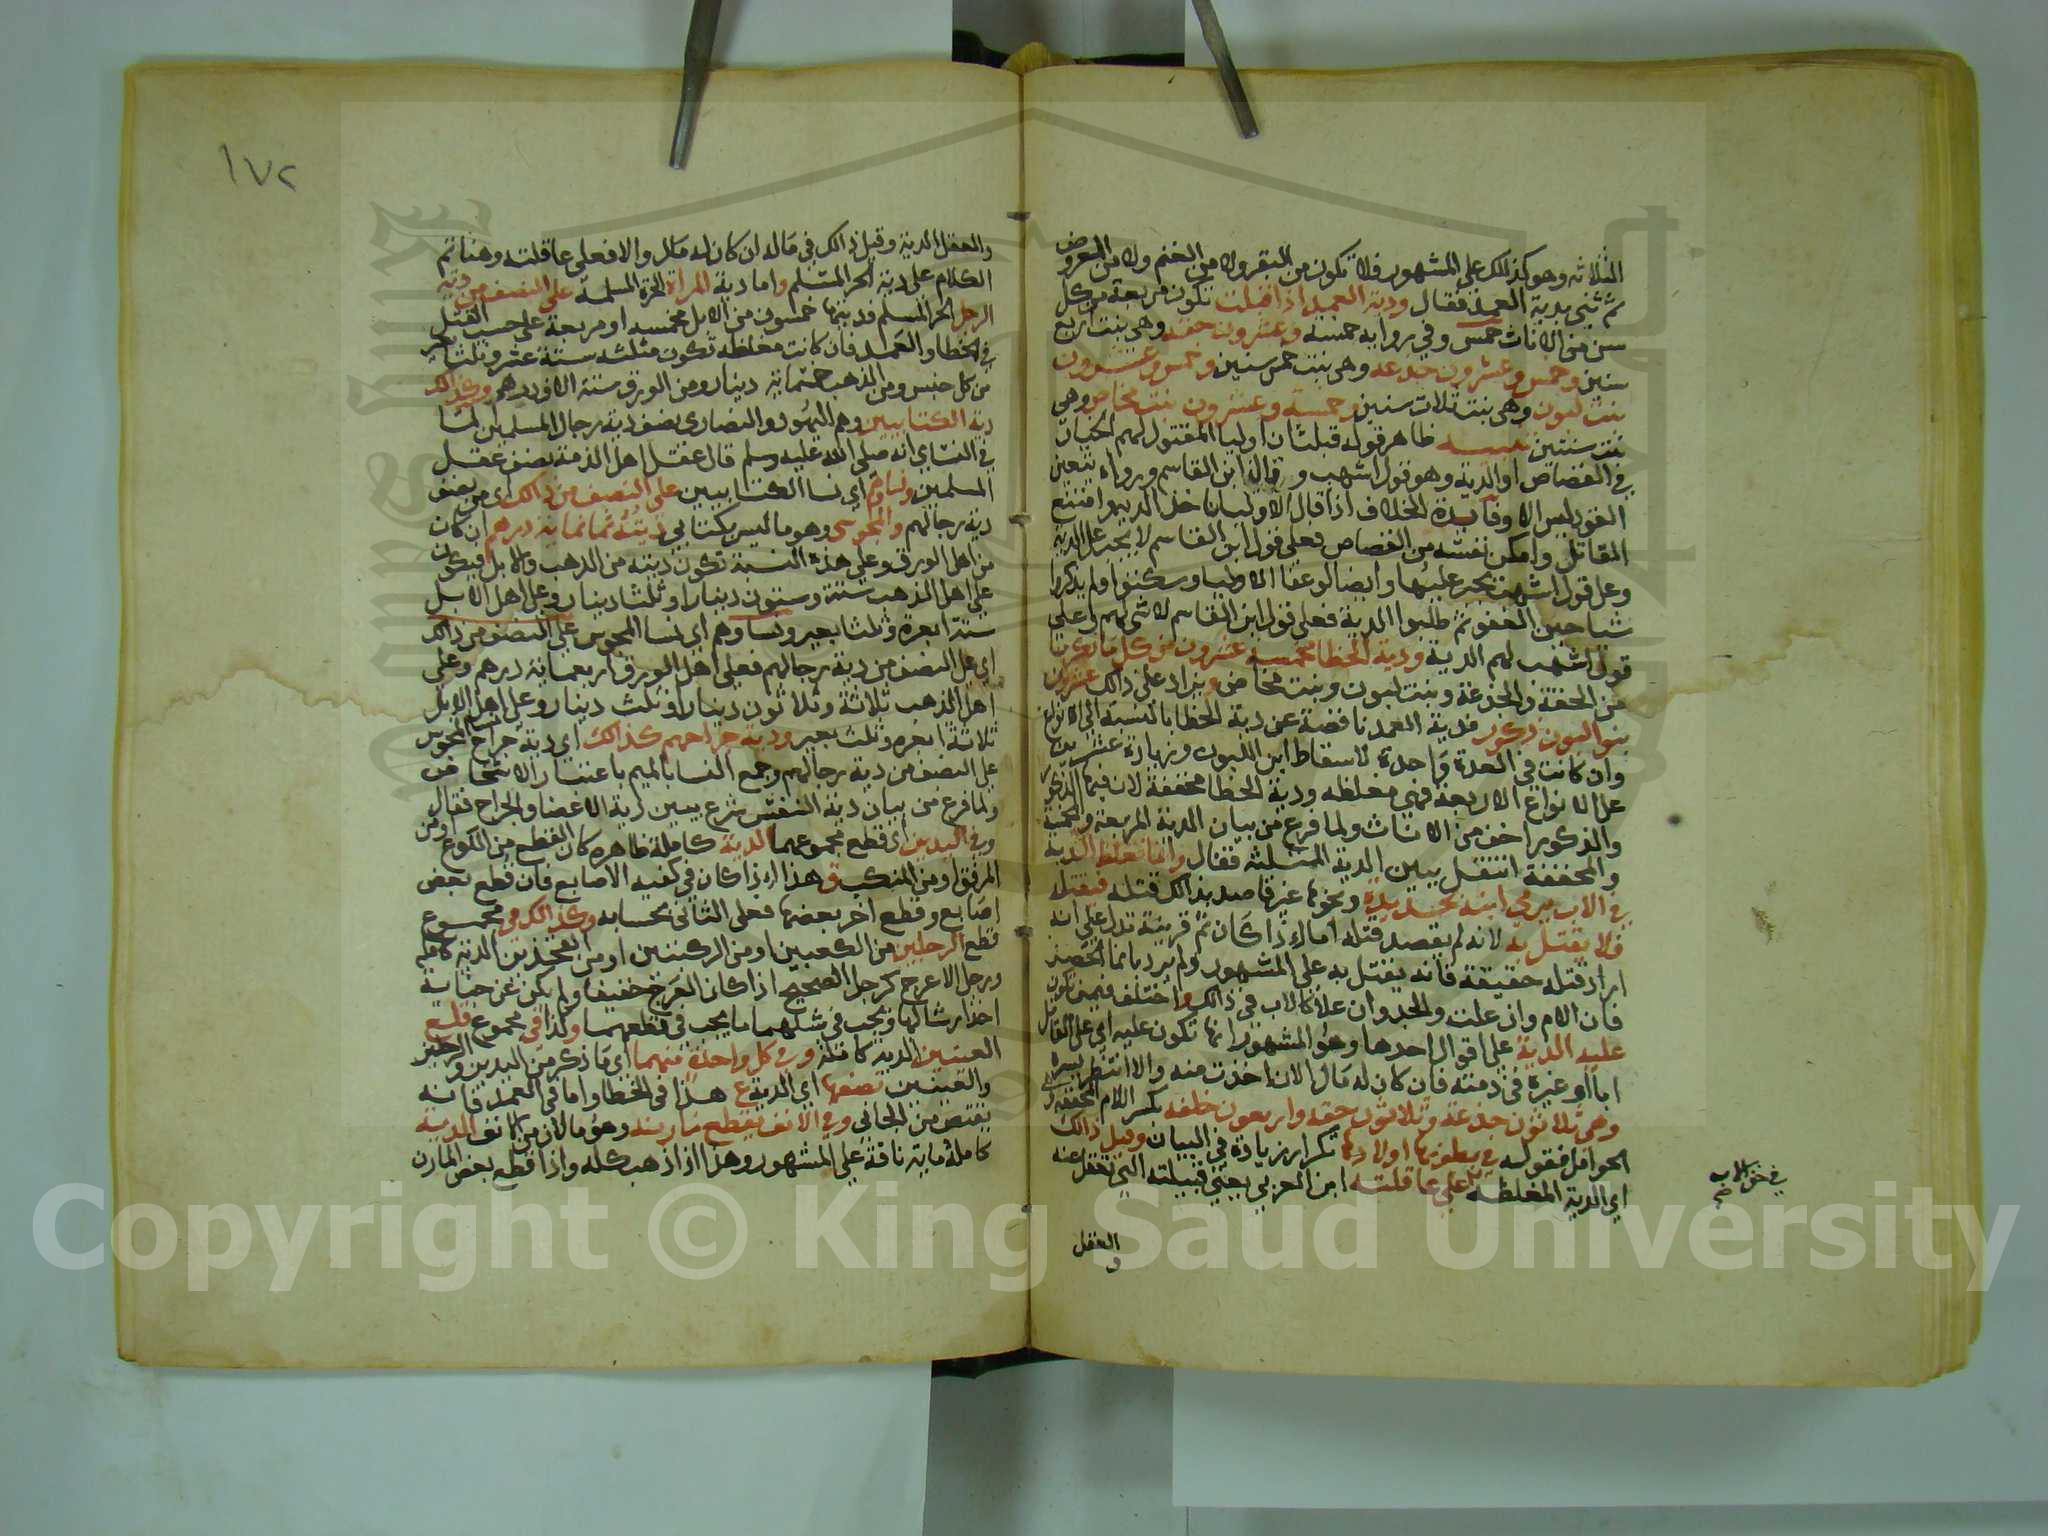 الثلاثه وهو كذلك على المشهور فلا تكون من البقر ولا من الغنم ولا من العروض
ثم ثنى بدية العمد فقال ودية العمد اذا قبلت تكون مربعة من كل
سن من الاناث خمس وفي رواية خمسة وعشرون حقة وهي بنت اربع
سنين وخمس وعشرون جذعه وهي بنت خمس سنين وخمس وعشرون
بنت لبون وهي بنت ثلاث سنين وخمسة وعشرون بنت مخاض وهي
بنت سنتين تنبيه ظاهر قوله قبلت ان اوليا المقتول لهم الخيار
في القصاص او الدية وهو قول اشهب و قال ابن القاسم ورواه يتعين
القود ليس الا وفائدة الخلاف اذا قال الاوليا ناخذ الدية وامتنع
القاتل وامكن نفسه من القصاص فعلى قول ابن القاسم لا يجبر على الدية
وعلى قول اشهب يجبر عليها وايضا لو عفا الاوليا وسكتوا ولم يذكروا
شيا حين العفو ثم طلبوا الدية فعلى قول ابن القاسم لا شي لهم وعلى
قول اشهب لهم الدية ودية الخطا مخمسة عشرون من كل ما ذكرنا
من الحقة والجذعة وبنت لبون وبنت مخاض ويزاد على ذالك عشرون
بنو لبون ذكور فدية العمد ناقصة عن دية الخطا بالنسبة الى الانواع
وان كانت في العدة واحدة لاسقاط ابن اللبون وزيادة عشرينها
على الانواع الاربعة فهي مغلظه ودية الخطا مخففة لان فيها الذكور
والذكور اخف من الاناث ولما فرغ من بيان الدية المربعة والمخمسة
والمخففة انتقل يبين الدية المثلثه فقال وانما تغلظ الدية
في الاب يرمي ابنه بحديدة ونحوها غير قاصد بذالك قتله فيقتله
فلا يقتل به لانه لم يقصد قتله اما اذا كان ثم قرينة تدل على انه
اراد قتله حقيقة فانه يقتل به على المشهور ولم يرد بانما الحصر
فان الام وان علت والجد وان علا كالاب في ذالك واختلف فيمن تكون
عليه الدية على اقوال احدها وهو المشهور انها تكون عليه اي على القاتل
ابا او غيره في ذمته فان كان له مال الان اخذت منه والا انتظر يسره
وهي ثلاثون جذعة وثلاثون حقه واربعون خلفه بكسر اللام المخففه
الحوامل فقوله في بطونها اولادها تكرار زيادة في البيان وقيل ذالك
اي الدية المغلظه على عاقلته ابن العربي يعني قبيلته التي تعقل عنه
العقل
و
والعقل الدية وقيل ذالك في ماله ان كان له مال والا فعلى عاقلته وهنا تم
الكلام على دية الحر المسلم واما دية المراة الحرة المسلمة على النصف من دية
الرجل الحر المسلم فديتها خمسون من الابل مخمسه او مربعة على حسب القتل
في الخطا والعمد فان كانت مغلظه تكون مثلثه ستة عشر وثلثا بعير
من كل جنس ومن الذهب خمسماية دينار ومن الورق ستة الاف درهم وكذالك
دية الكتابيين وهم اليهود والنصارى نصف دية رجال المسلمين لما
في النساي انه صلى الله عليه وسلم قال عقل اهل الذمة نصف عقل
المسلمين ونساوهم اي نسا الكتابيين على النصف من ذالك اي من نصف
دية رجالهم والمجوسي وهو ما ليس بكتابي ديته ثمانماية درهم ان كان
من اهل الورق وعلى هذه النسبة تكون ديته من الذهب والابل فيكون
على اهل الذهب ستة وستون دينارا وثلثا دينار وعلى اهل الابل
ستة ابعرة وثلثا بعير ونساوهم اي نسا المجوس على النصف من ذالك
اي على النصف من دية رجالهم فعلى اهل الورق اربعماية درهم وعلى
اهل الذهب ثلاثة وثلاثون دينارا وثلث دينار وعلى اهل الابل
ثلاثة ابعره وثلث بعير ودية جراحهم كذالك اي دية جراح نسا المجوس
على النصف من دية رجالهم وجمع النسا بالميم باعتبار الاشخاص
ولما فرغ من بيان دية النفس شرع يبين دية الاعضا والجراح فقال
وفي اليدين اي قطع مجموعهما الدية كاملة ظاهره كان القطع من الكوع او من
المرفق او من المنكب وهذا اذا كان في كفيه الاصابع فان قطع بعض
اصابع وقطع اخر بعضها فعلى الثاني بحسابه وكذالك في مجموع
قطع الرجلين من الكعبين او من الركبتين او من الفخذين الدية كاملة
ورجل الاعرج كرجل الصحيح اذا كان العرج خفيفا ولم يكن عن جناية
اخذ ارشالها ويجب في شللهما ما يجب في قطعهما وكذا في مجموع قلع
العينين الدية كاملة وفي كل واحدة منهما اي ما ذكر من اليدين والرجلين
والعينين نصفها اي الدية ع هذا في الخطا واما في العمد فانه
يقتص من الجاني وفي الانف يقطع مارنه وهو ما لان من الانف الدية
كاملة ماية ناقة على المشهور وهذا اذا ذهب كله واذا قطع بعض المارن
١٧٢
Copyright © King Saud University